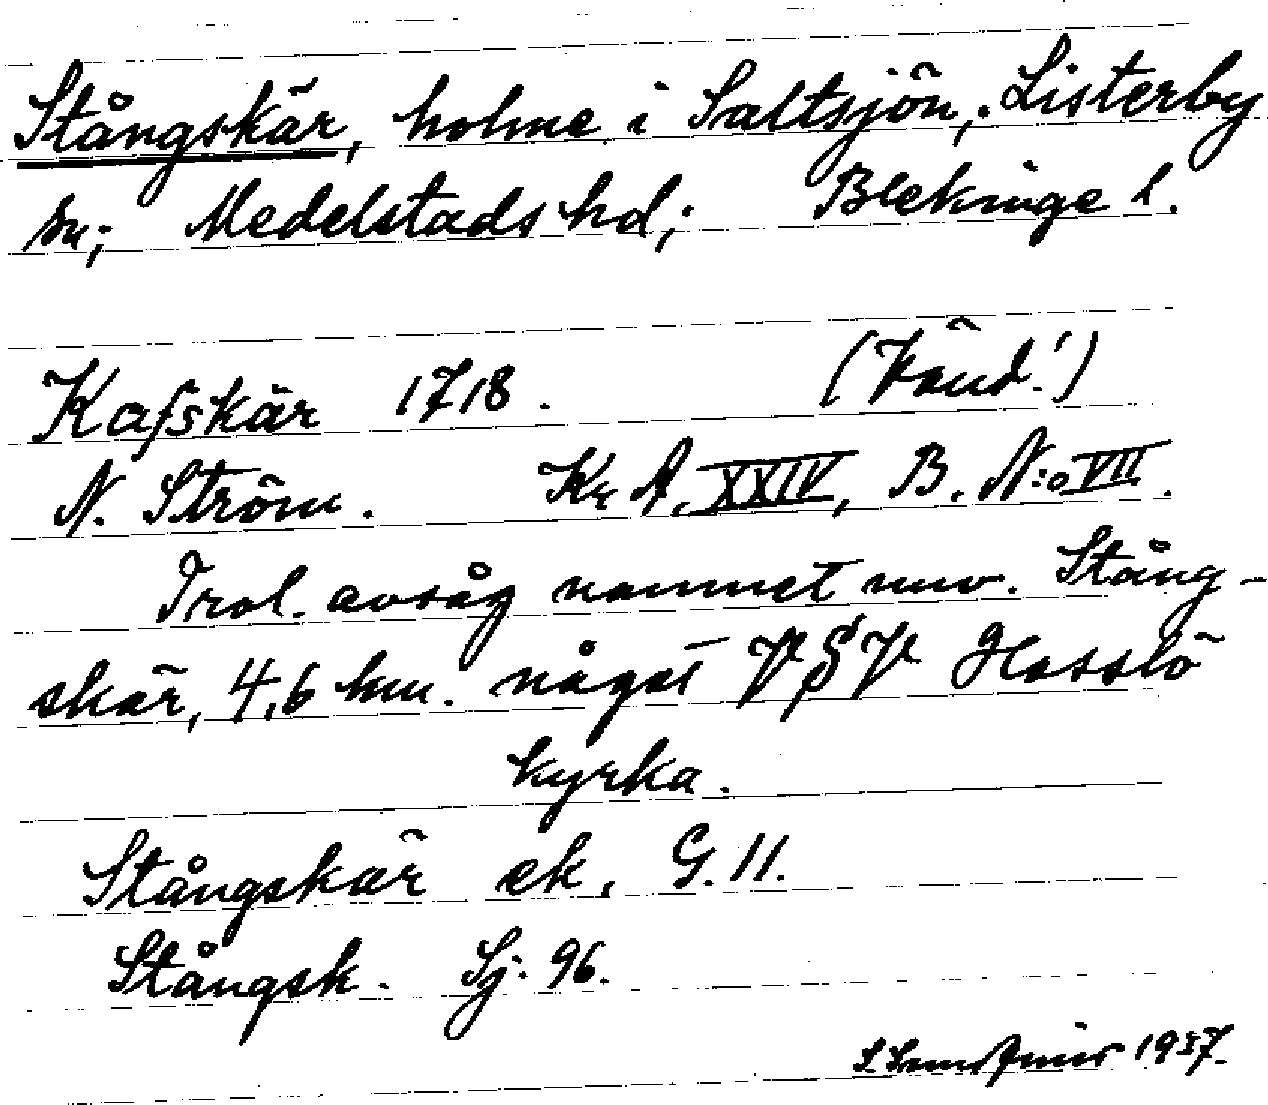 Stångskär, holme i Saltsjön, Listerby
sn; Medelstads hd; Blekinge l.
Kafskär 1718. (Känd!)
N. Ström. Kr A. XXIV, B. N:o VII.
Trol. avsåg namnet nuv. Stång-
skär, 4,6 km. något VSV Hasslö
kyrka.
Stångskär ek. G. 11.
Stångsk. Sj. 96.
1937.